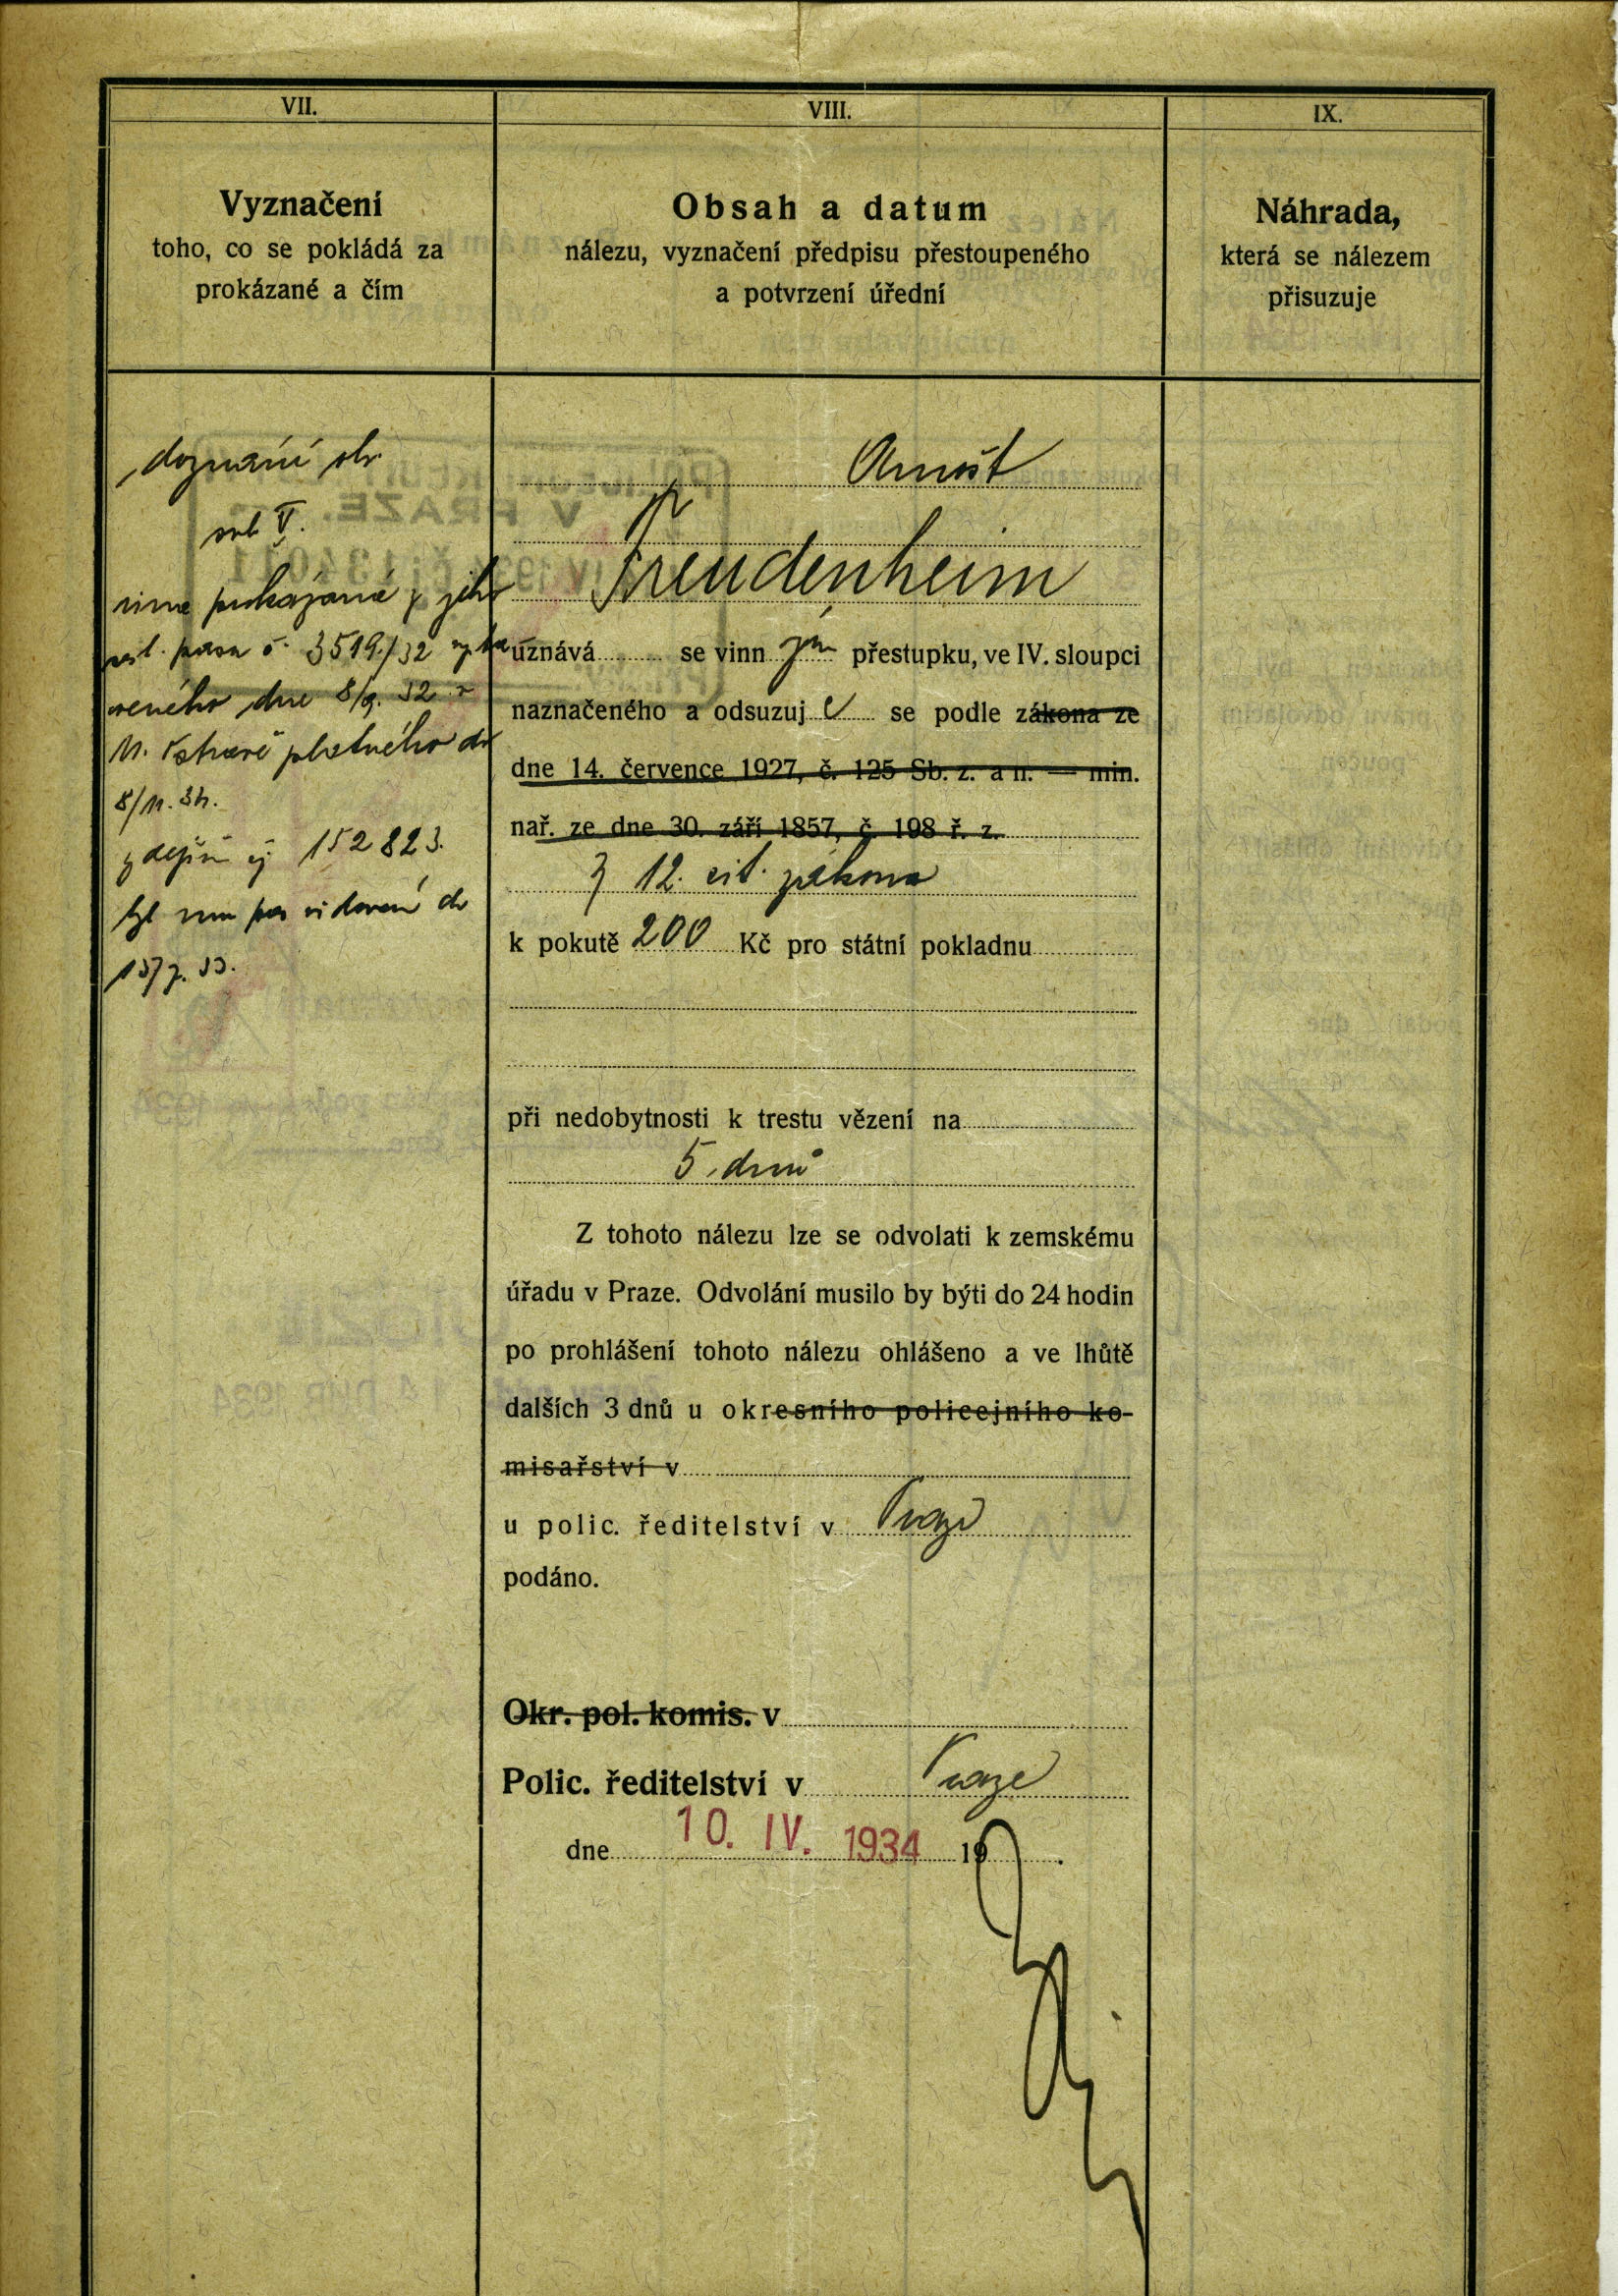 VII.
Vyznačení
toho, co se pokládá za
prokázané a čím
doznání obv.
sub V.
vina prokázaná z jeho
pasu č. 3519/32
dne 8/9. 32
platného do
8/11. 34.
čj 152823.
byl mu pas do
VIII.
Obsah a datum
nálezu, vyznačení předpisu přestoupeného
a potvrzení úřední
Arnošt
Freudenheim
uznává se vinn ým přestupku, ve IV. sloupci
naznačeného a odsuzuj e se podle zákona ze
dne 14. července 1927, č. 125 Sb. z. a n. — min.
nař. ze dne 30. září 1857, č. 198 ř. z.
§ 12. cit. zákona
k pokutě 200 Kč pro státní pokladnu
při nedobytnosti k trestu vězení na
5 dnů
Z tohoto nálezu lze se odvolati k zemskému
úřadu v Praze. Odvolání musilo by býti do 24 hodin
po prohlášení tohoto nálezu ohlášeno a ve lhůtě
dalších 3 dnů u okresního policejního ko-
misařství v
u polic. ředitelství v Praze
podáno.
Okr. pol. komis. v
Polic. ředitelství v Praze
dne 10. IV. 1934 19 .
IX.
Náhrada,
která se nálezem
přisuzuje